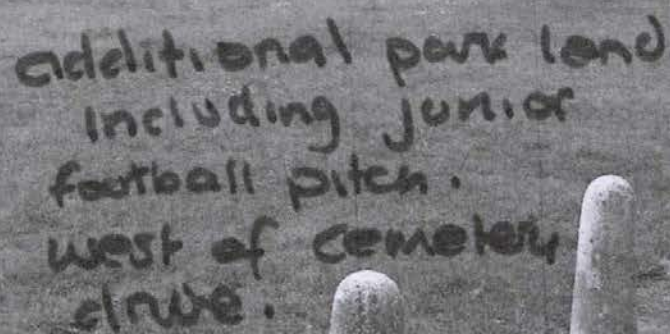 additional park land
including junior
football pitch.
west of cemetery
drive.